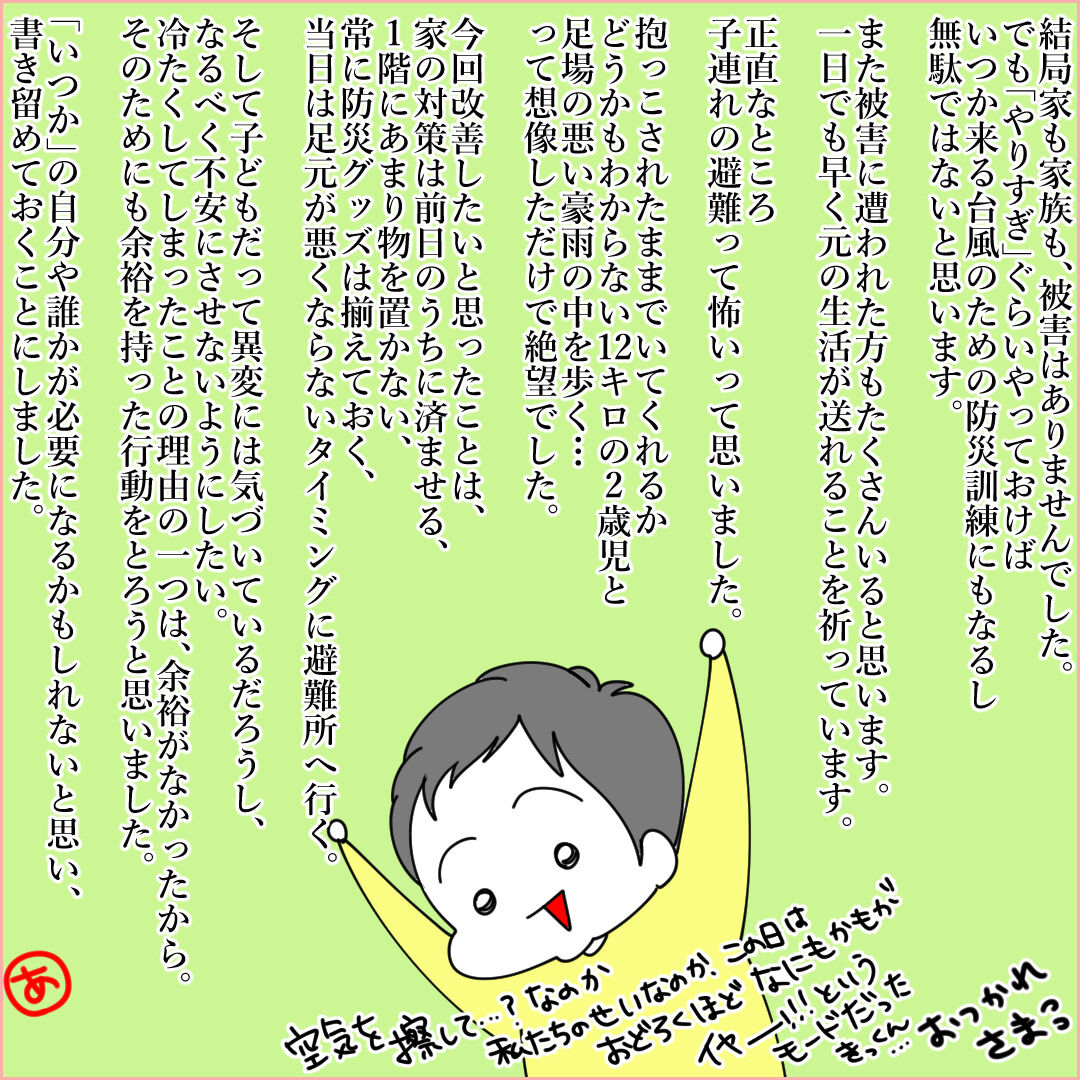 結局家も家族も、被害はありませんでした。
でも「やりすぎ」ぐらいやっておけば
いつか来る台風のための防災訓練にもなるし
無駄ではないと思います。
また被害に遭われた方もたくさんいると思います。
一日でも早く元の生活が送れることを祈っています。
正直なところ
子連れの避難って怖いって思いました。
抱っこされたままでいてくれるか
どうかもわからない12キロの２歳児と
足場の悪い豪雨の中を歩く…
って想像しただけで絶望でした。
今回改善したいと思ったことは、
家の対策は前日のうちに済ませる、
１階にあまり物を置かない、
常に防災グッズは揃えておく、
当日は足元が悪くならないタイミングに避難所へ行く。
そして子どもだって異変には気づいているだろうし、
なるべく不安にさせないようにしたい。
冷たくしてしまったことの理由の一つは、余裕がなかったから。
そのためにも余裕を持った行動をとろうと思いました。
「いつか」の自分や誰かが必要になるかもしれないと思い、
書き留めておくことにしました。
空気を擦して…？なのか
私たちのせいなのか、この日は
おどろくほどなにもかもが
イヤー!!!という
モードだった
きっくん…
おつかれ
さまっ
あ